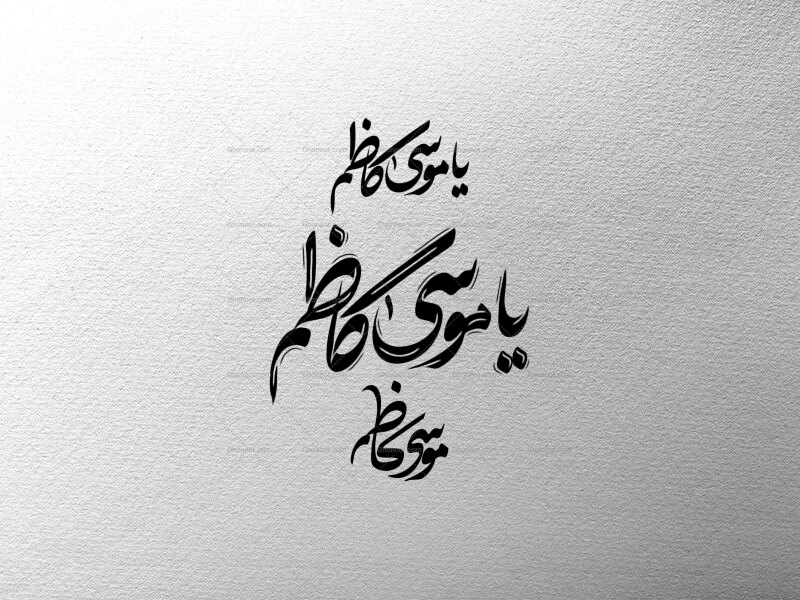 یا موسی کاظم
یا موسی کاظم
موسی کاظم